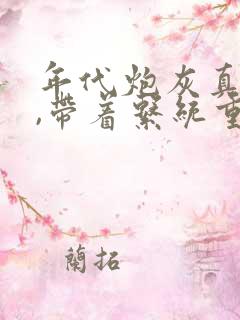 年代炮灰真
,带着繫統重
蘭拓